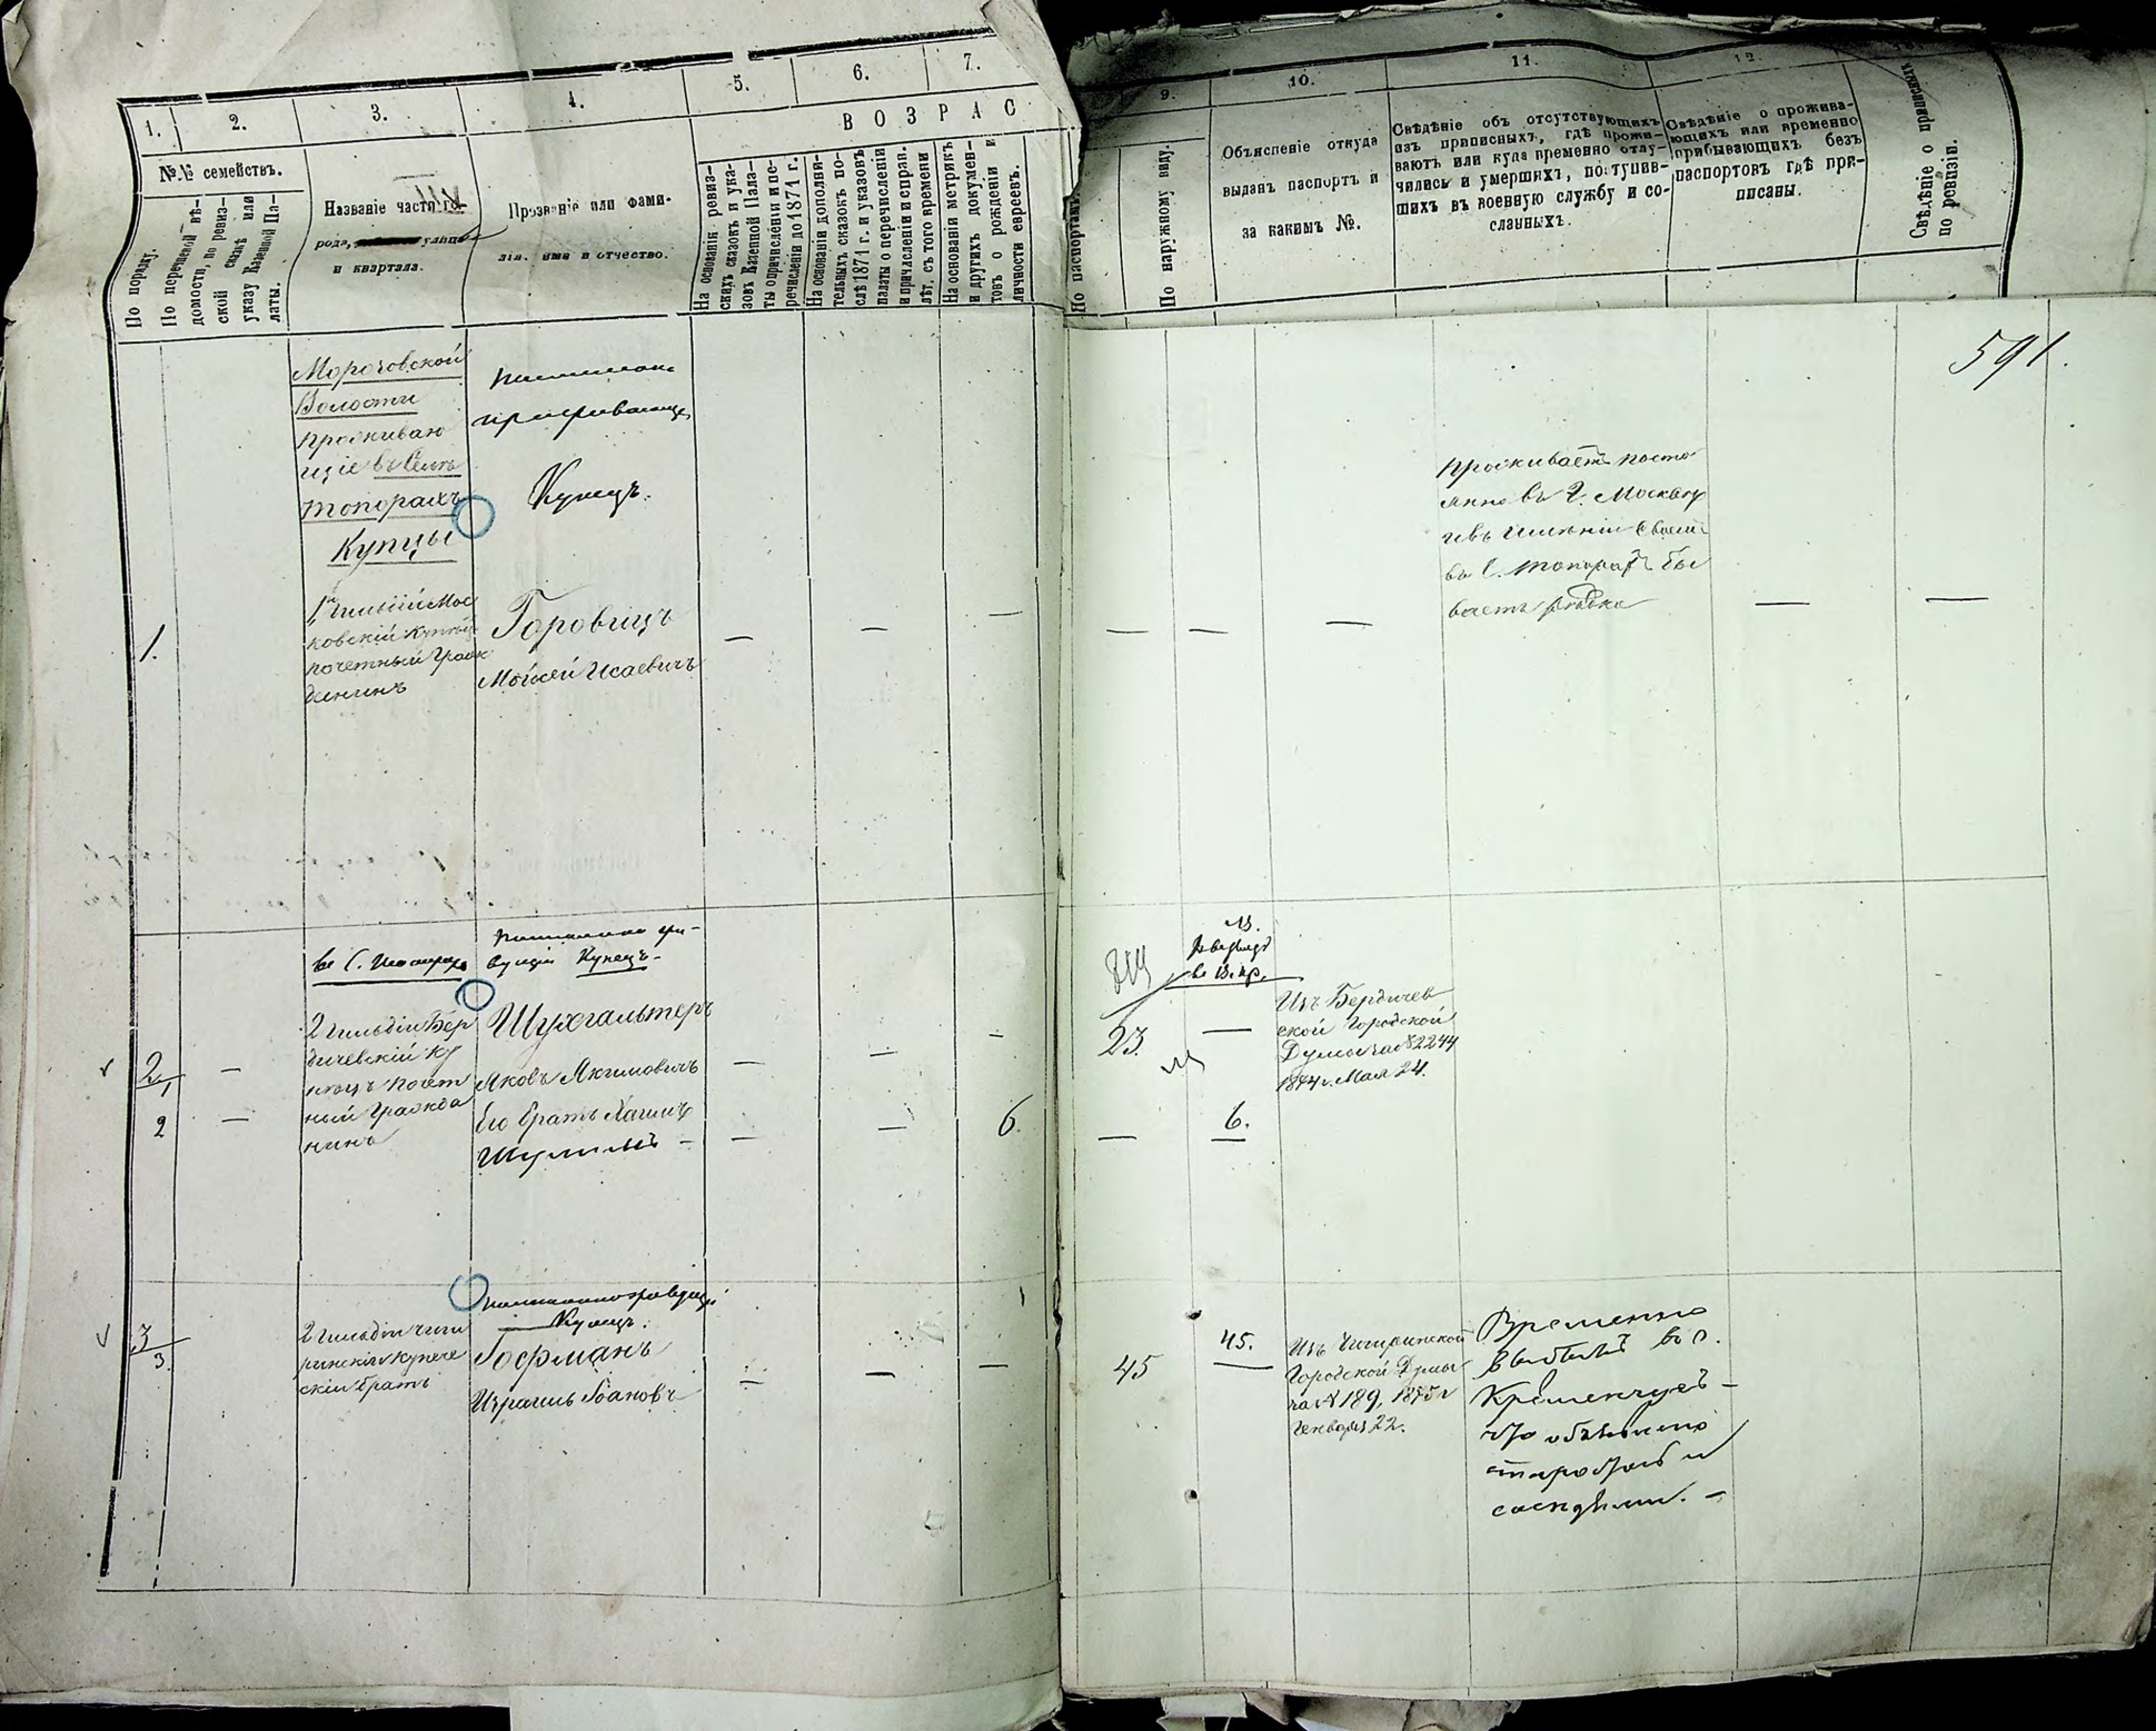 1.
2.
3.
4.
5.
6.
7.
В О З Р А С
№№ семействъ.
По порядку.
По перечневой вѣ-
домости, по ревиз-
ской сказкѣ или
указу Казенной Па-
латы.
Названіе части го-
рода, улицы
и квартала.
Прозваніе или фами-
лія, имя и отчество.
На основаніи ревиз-
скихъ сказокъ и ука-
зовъ Казенной Пала-
ты о причисленіи и пе-
речисленіи до 1871 г.
На основаніи дополни-
тельныхъ сказокъ по-
слѣ 1871 г. и указовъ
палаты о перечисленіи
и причисленіи и справ.
лѣт. съ того времени
На основаніи метрикъ
и другихъ докумен-
товъ о рожденіи и
личности евреевъ.
9.
10.
11.
12.
По паспортамъ.
По наружному виду.
Объясненіе откуда
выданъ паспортъ и
за какимъ №.
Свѣдѣніе объ отсутствующихъ
изъ приписныхъ, гдѣ прожи-
ваютъ или куда временно отлу-
чились и умершихъ, поступив-
шихъ въ военную службу и со-
сланныхъ.
Свѣдѣніе о прожива-
ющихъ или временно
прибывающихъ безъ
паспортовъ гдѣ при-
писаны.
Свѣдѣніе о приписныхъ
по ревизіи.
591.
Морозовской
Волости
проживаю
щіе въ Селѣ
Топорахъ
Купцы
Купецъ.
1.
1й Гильдіи Мос
ковскій Купецъ
почетный Граж
данинъ
Горовицъ
Мойсей Исаевичъ
—
—
—
—
—
—
Проживаетъ посто
янно въ Г. Москвѣ
и въ имѣніи своемъ
въ С. Топорахъ бы
ваетъ рѣдко
—
—
Купецъ
2/1
—
2 Гильдіи Бер
дичевскій Ку
пецъ почет
ный Гражда
нинъ
Шухгальтеръ
Яковъ Якимовичъ
—
—
—
23.
—
Изъ Бердичев
ской Городской
Думы за № 2244
1874 г. Мая 24.
2
—
Его братъ Хаимъ
Шулимъ —
—
—
6.
—
6.
3/3.
Купецъ.
2 Гильдіи Чиги
ринскій купече
скій братъ
Гофманъ
Израиль Іоановъ
—
—
—
45
45.
Изъ Чигиринской
Городской Думы
за № 189, 1875 г
Генваря 22.
Временно
выбылъ въ г.
Кременчугъ —
что объявлено
старостой и
сосѣдями. —